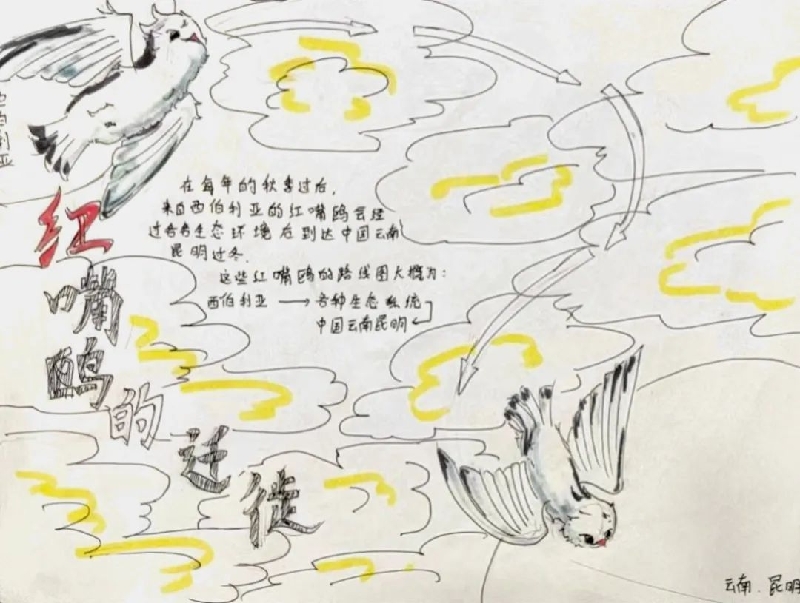 西伯利亚
红嘴鸥的迁徙
在每年的秋季过后，
来自西伯利亚的红嘴鸥会经
过各类生态环境后到达中国云南
昆明过冬.
这些红嘴鸥的路线图大概为:
西伯利亚 → 各种生态系统
中国云南昆明
云南.昆明